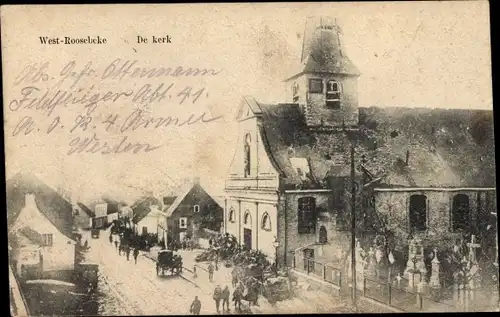 West-Roosebeke De kerk
Abs. Gefr. Ottermann
Feldflieger Abt 41.
A. O. K. 4 Armee
Westen